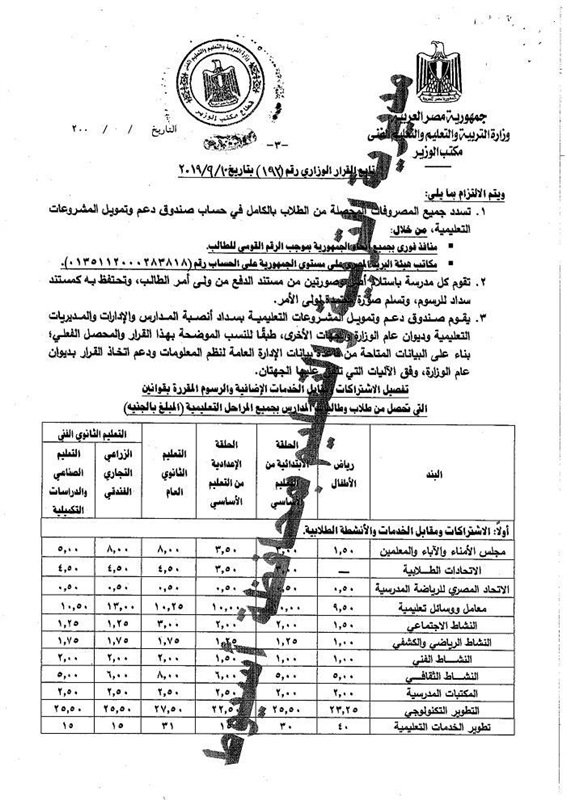 وزارة التربية والتعليم والتعليم الفنى
قطاع مكتب الوزير
جمهورية مصر العربية
وزارة التربية والتعليم والتعليم الفنى
مكتب الوزير
التاريخ / / ٢٠٠
-٣-
تابع القرار الوزاري رقم (١٩٢) بتاريخ ٢٠١٩/٩/١٠
ويتم الالتزام بما يلى:
١. تسدد جميع المصروفات المحصلة من الطلاب بالكامل في حساب صندوق دعم وتمويل المشروعات
التعليمية، من خلال:
▪ منافذ فورى بجميع أنحاء الجمهورية بموجب الرقم القومى للطالب.
▪ مكاتب هيئة البريد المصرى على مستوى الجمهورية على الحساب رقم
٢. تقوم كل مدرسة باستلام أصل وصورتين من مستند الدفع من ولى أمر الطالب، وتحتفظ به كمستند
سداد للرسوم، وتسلم صورة معتمدة لولى الأمر.
٣. يقوم صندوق دعم وتمويل المشروعات التعليمية بسداد أنصبة المدارس والإدارات والمديريات
التعليمية وديوان عام الوزارة والجهات الأخرى، طبقًا للنسب الموضحة بهذا القرار والمحصل الفعلي؛
بناء على البيانات المتاحة من قاعدة بيانات الإدارة العامة لنظم المعلومات ودعم اتخاذ القرار بديوان
عام الوزارة، وفق الآليات التي تتفق عليها الجهتان.
تفصيل الاشتراكات ومقابل الخدمات الإضافية والرسوم المقررة بقوانين
التى تحصل من طلاب وطالبات المدارس بجميع المراحل التعليمية (المبلغ بالجنيه)
البند رياض الأطفال الحلقة الابتدائية من التعليم الأساسي الحلقة الإعدادية من التعليم الأساسي التعليم الثانوي العام التعليم الثانوي الفني
الزراعي التجاري الفندقي التعليم الصناعي والدراسات التكميلية
أولاً: الاشتراكات ومقابل الخدمات والأنشطة الطلابية.
مجلس الأمناء والآباء والمعلمين ١,٥٠ ٣,٥٠ ٨,٠٠ ٨,٠٠ ٥,٠٠
الاتحادات الطلابية — ٣,٥٠ ٤,٥٠ ٤,٥٠ ٤,٥٠
الاتحاد المصري للرياضة المدرسية ٠,٥٠ ٠,٥٠ ٠,٥٠ ٠,٥٠
معامل ووسائل تعليمية ٩,٥٠ ١٠,٠٠ ١٠,٢٥ ١٣,٠٠ ١٠,٥٠
النشاط الاجتماعي ١,٠٠ ٢,٠٠ ٢,٠٠ ٣,٠٠ ١,٢٥ ١,٢٥
النشاط الرياضي والكشفي ١,٠٠ ١,٢٥ ١,٢٥ ١,٧٥ ١,٧٥ ١,٧٥
النشاط الفني ١,٠٠ ١,٥٠ ٢,٠٠ ٢,٠٠ ٢,٠٠
النشاط الثقافي ٥,٠٠ ٥,٠٠ ٦,٠٠ ٨,٠٠ ٦,٠٠ ٥,٠٠
المكتبات المدرسية ٢,٠٠ ٢,٥٠ ٢,٥٠ ٢,٥٠ ٢,٥٠
التطوير التكنولوجي ٢٣,٢٥ ٢٥,٥٠ ٢٢,٥٠ ٢٧,٥٠ ٢٥,٥٠ ٢٥,٥٠
تطوير الخدمات التعليمية ٤٠ ٣٠ ٣١ ١٥ ١٥
مديرية التربية والتعليم بمحافظة أسيوط